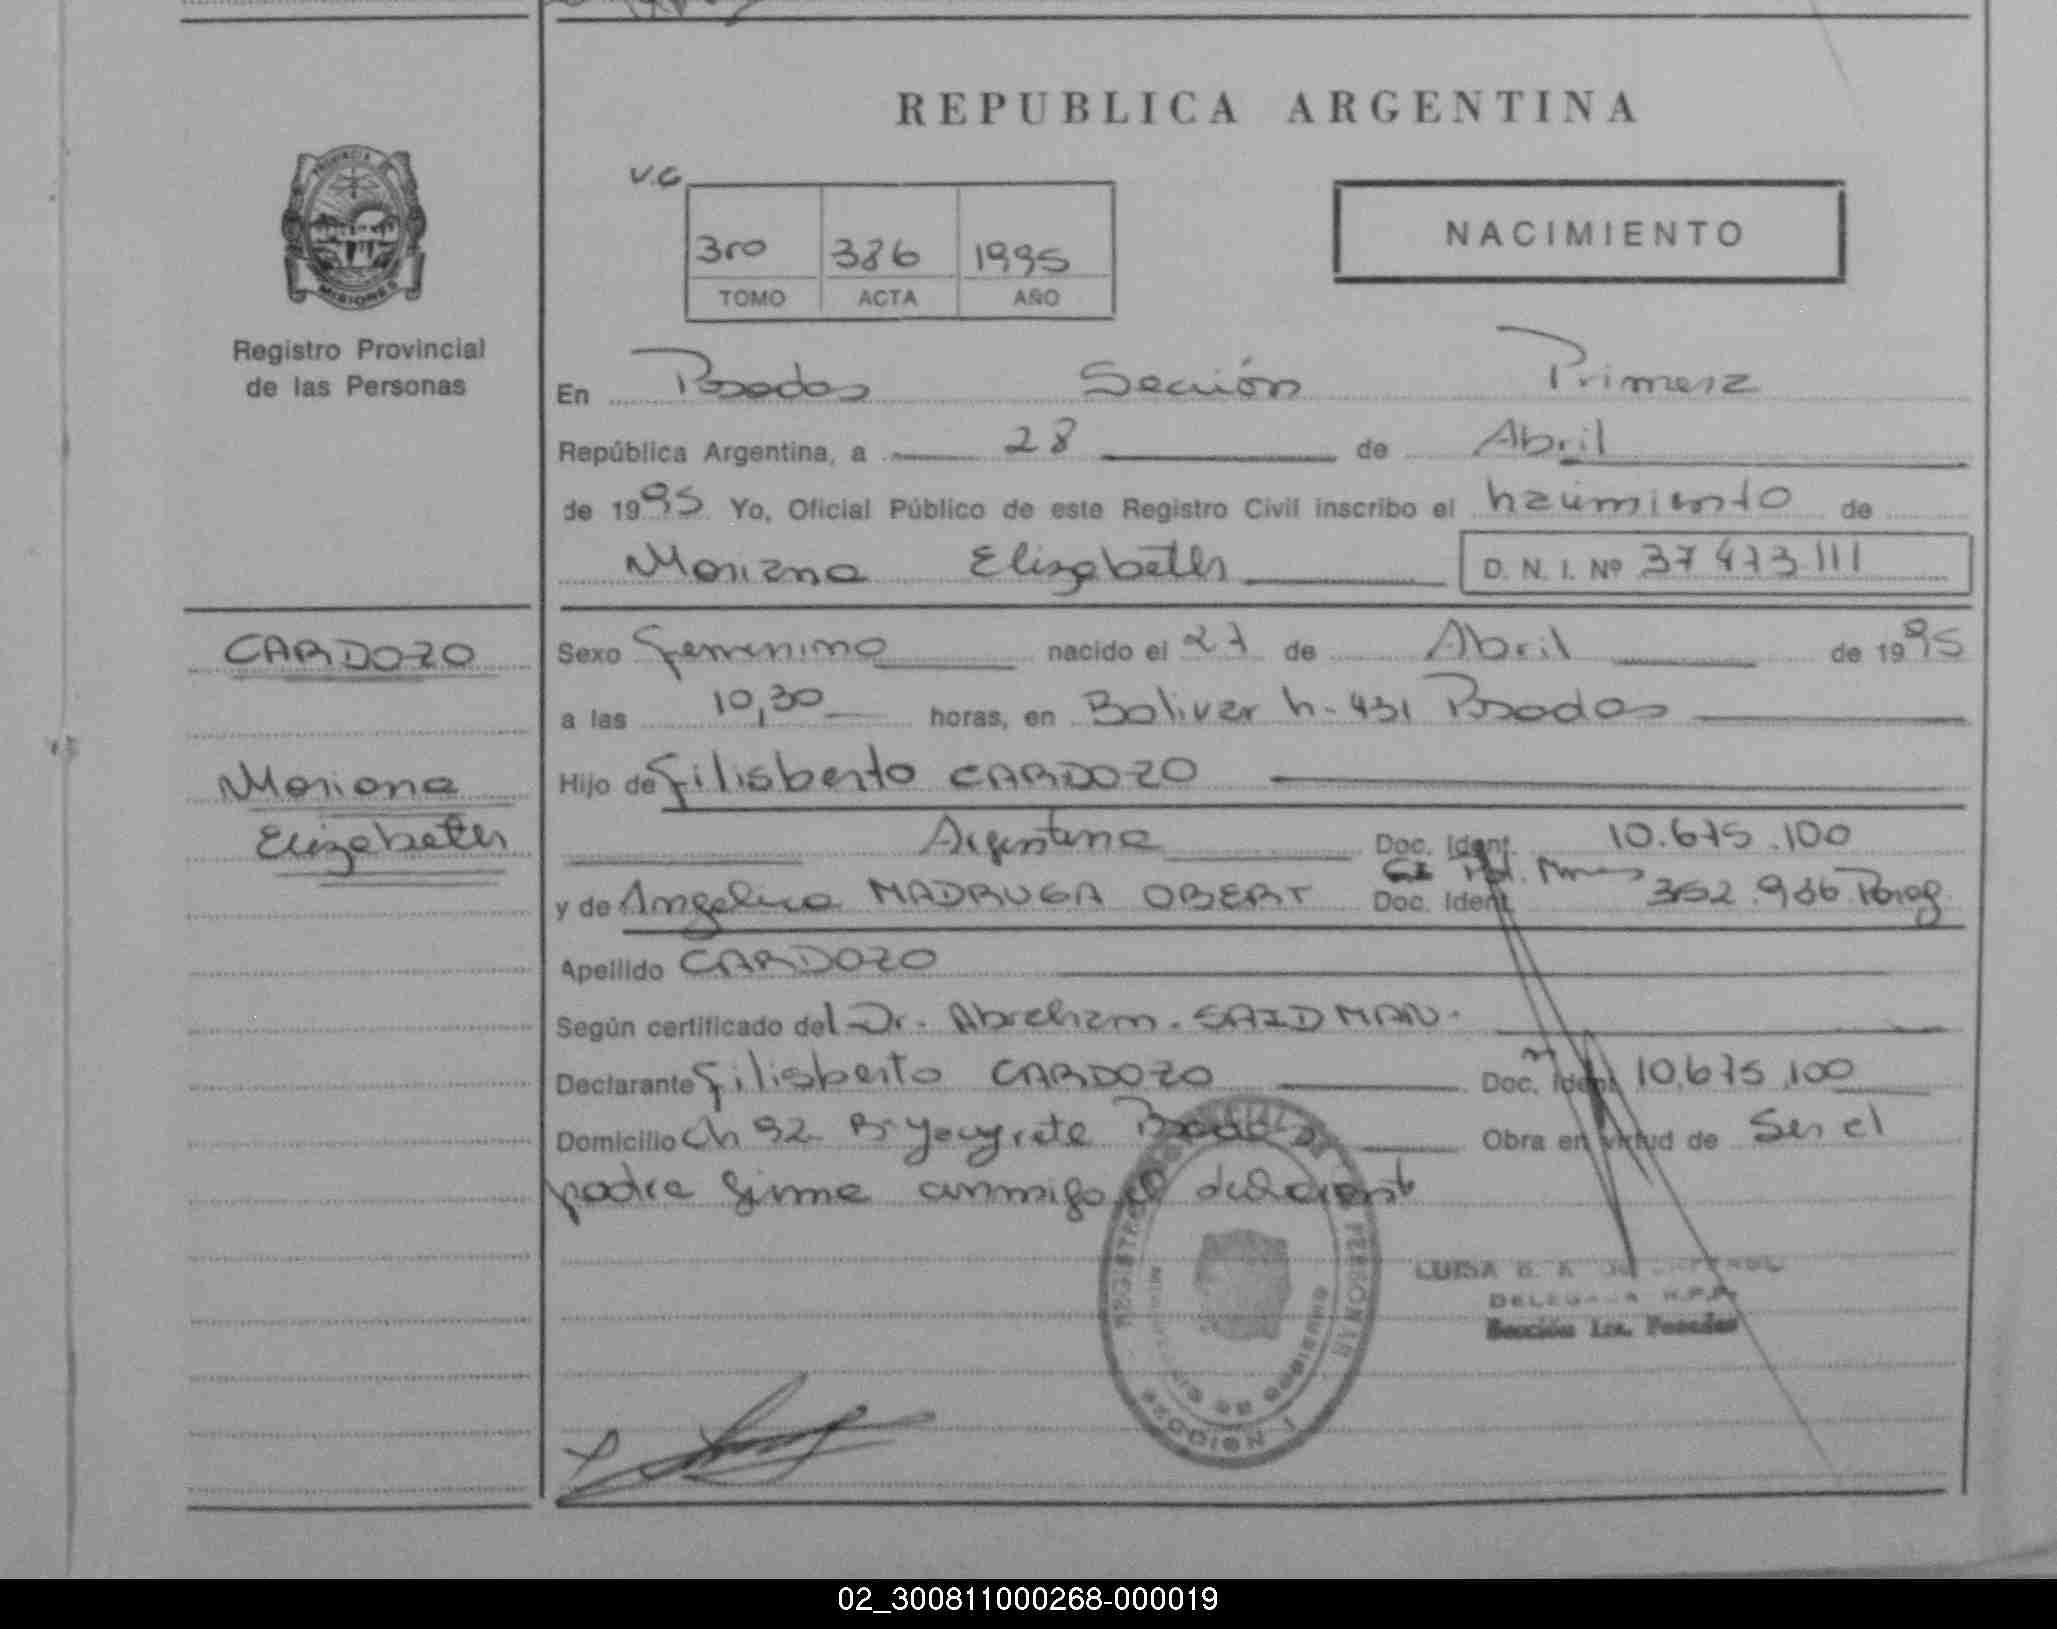 REPUBLICA ARGENTINA
V.C
3ro 386 1995
TOMO ACTA AÑO
NACIMIENTO
PROVINCIA DE
MISIONES
Registro Provincial
de las Personas
En Posadas Sección Primera
República Argentina, a 28 de Abril
de 1995 Yo, Oficial Público de este Registro Civil inscribo el nacimiento de
Mariana Elizabeth D. N. I. Nº 37 473 111
CARDOZO
Mariana
Elizabeth
Sexo femenino nacido el 27 de Abril de 1995
a las 10,30 horas, en Bolivar n- 431 Posadas
Hijo de Filisberto CARDOZO
Argentina Doc. Ident. 10.675.100
y de Angelica MADRUGA OBERT Doc. Ident. 352.986 Parag
Apellido CARDOZO
Según certificado del Dr. Abraham. SAIDMAN.
Declarante Filisberto CARDOZO Doc. Ident. 10.675.100
Domicilio Ch 92 Bº Yacyreta Posadas Obra en virtud de Ser el
padre firma conmigo el declarante
REGISTRO PROVINCIAL DE LAS PERSONAS
MINISTERIO DE GOBIERNO
SECCION 1
LUISA
DELEGADA R.P.P.
Sección 1ra. Posadas
02_300811000268-000019